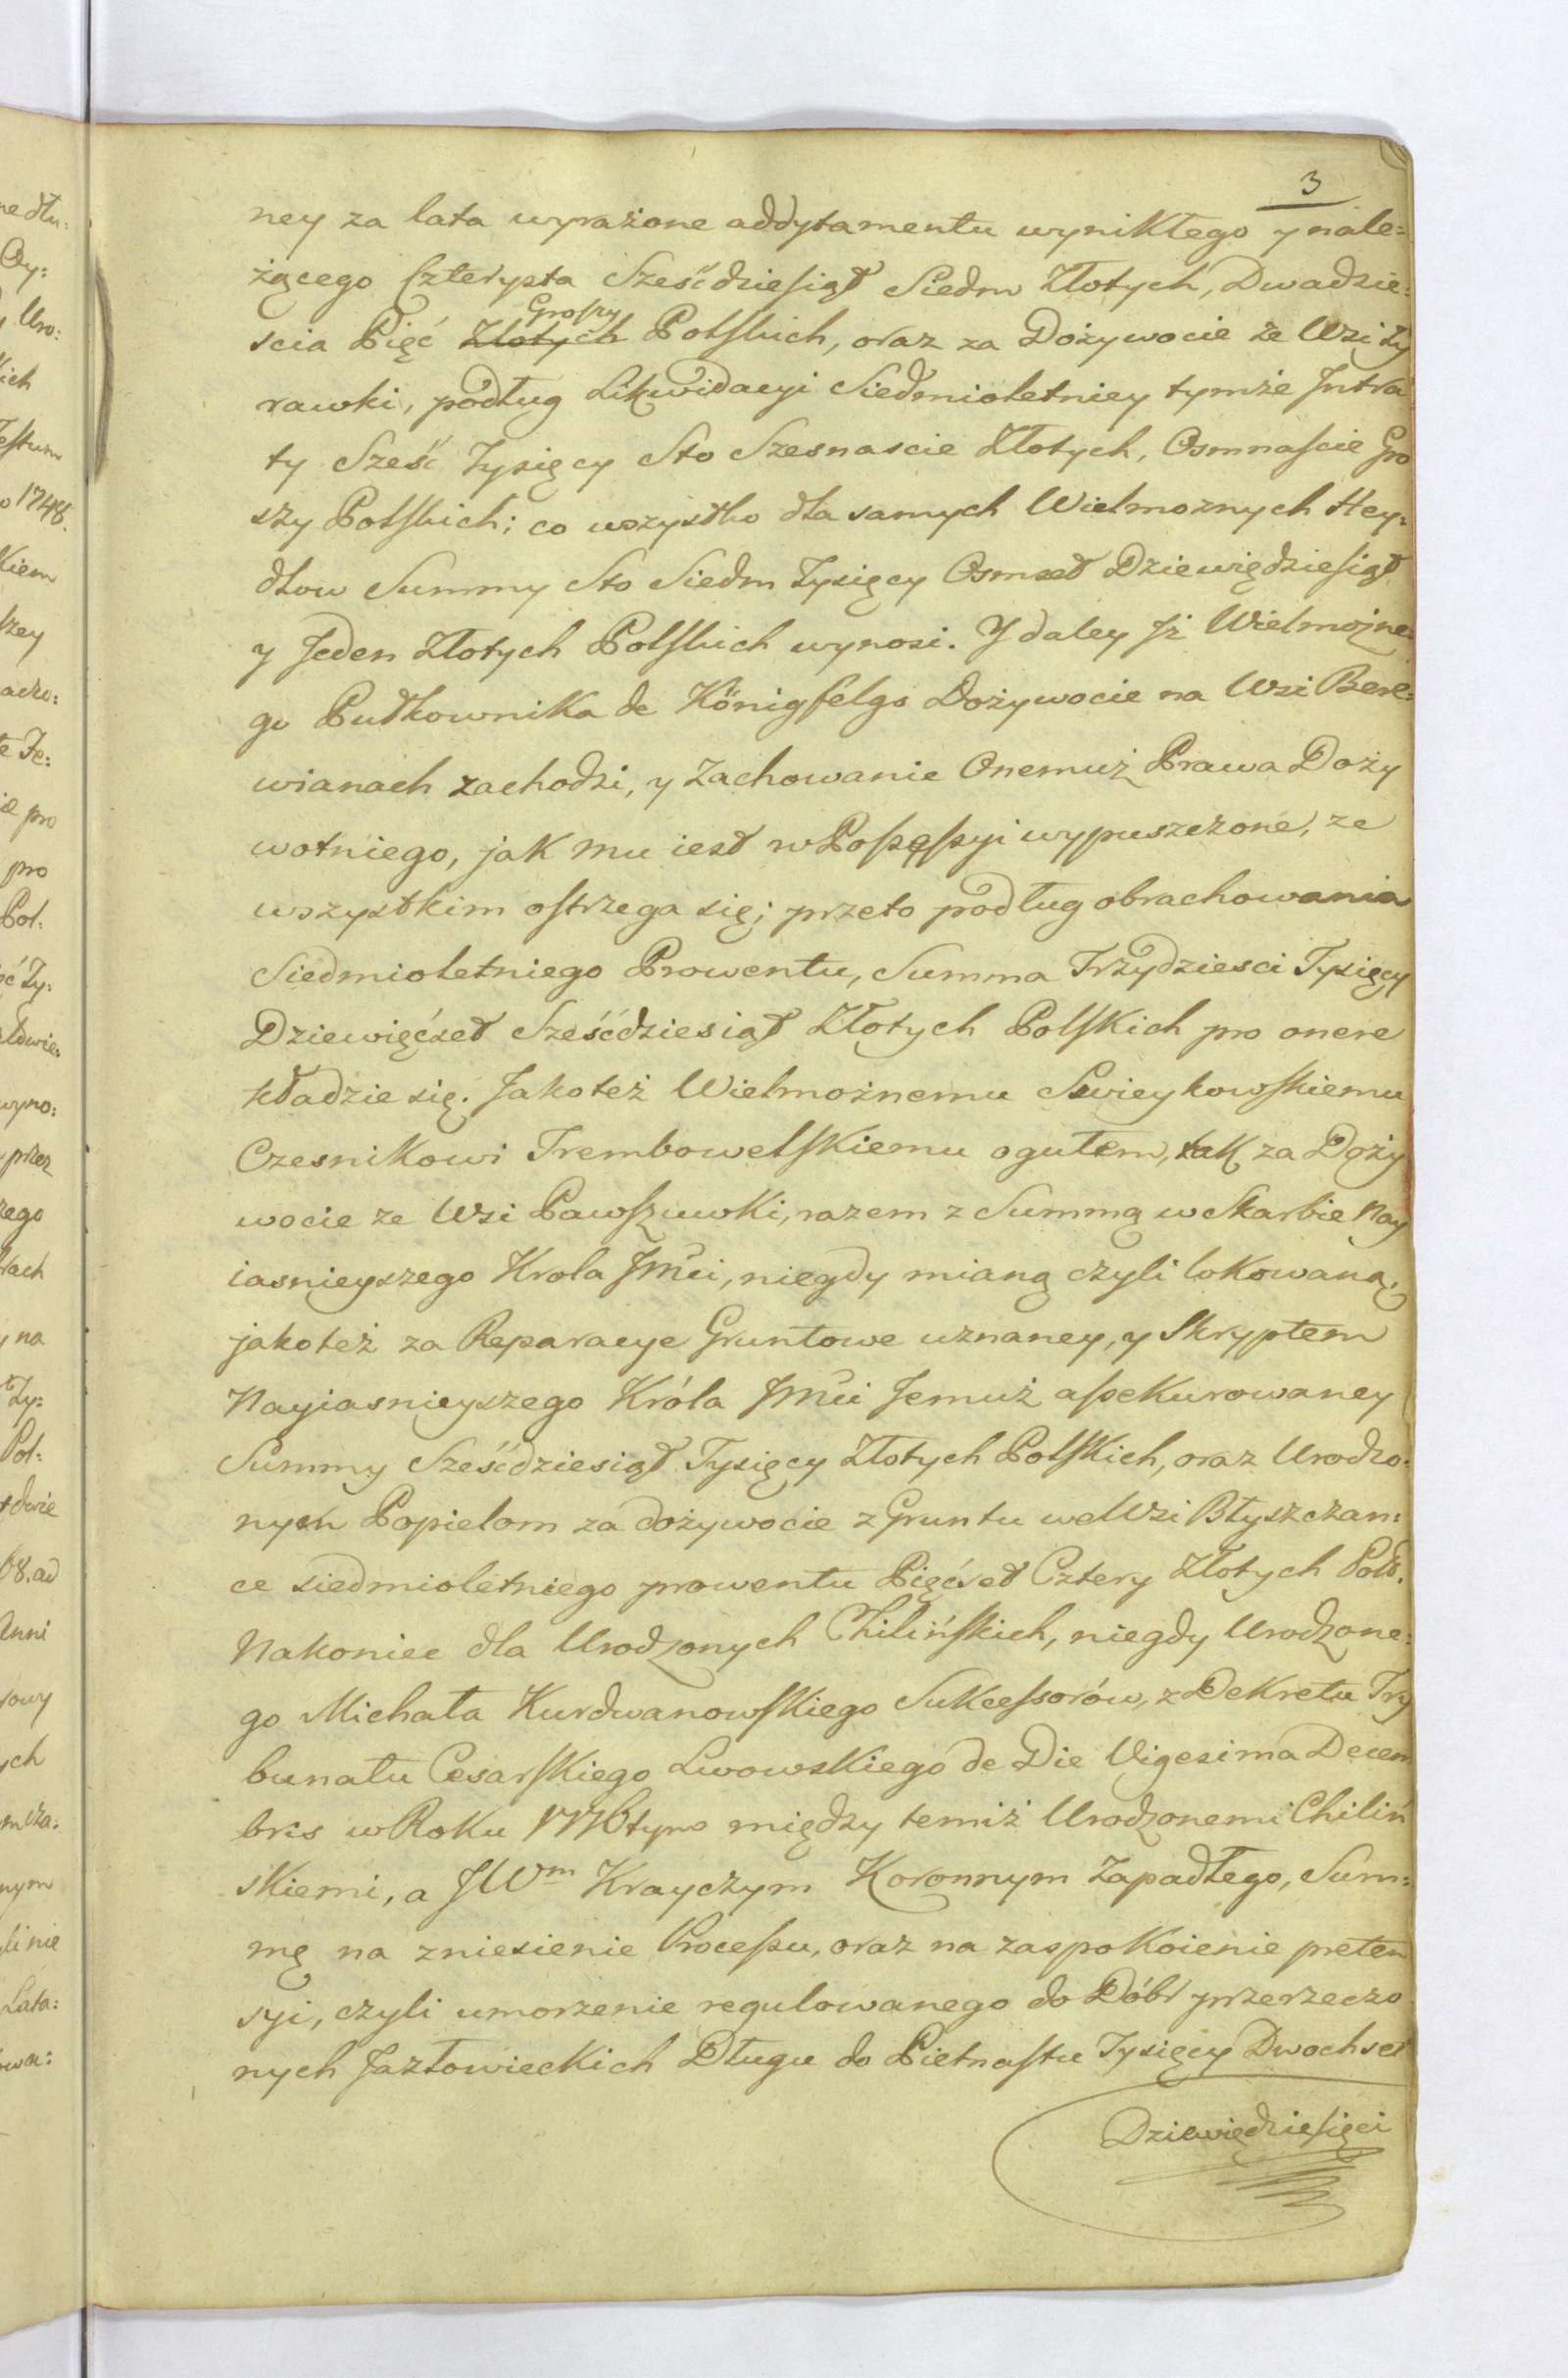 3
ney za lata wyrażone addytamentu wynikłego y nale=
żącego Czterysta Sześćdziesiąt Siedm Złotych, Dwadzie=
Groszy
scia Pięć Złotych Polskich, oraz za Dożywocie ze Wsi Ży
rawki, podług Likwidacyi Siedmioletniey tymże Intra
ty Sześć Tysięcy Sto Szesnascie Złotych, Osmnascie Gro
szy Polskich; co wszystko dla samych Wielmoznych Hey=
dłow Summy Sto Siedm Tysięcy Osmset Dziewiędziesiąt
y Jeden Złotych Polskich wynosi. Y daley Jż Wielmożne=
go Pułkownika de Königfelgs Dożywocie na Wsi Bere=
wianach zachodzi, y Zachowanie Onemuż Prawa Doży
wotniego, jak mu iest w Possęssyi wypuszczone, ze
wszystkim ostrzega się; przeto podług obrachowania
Siedmioletniego Prowentu, Summa Trzydziesci Tysięcy
Dziewięćset Sześćdziesiąt Złotych Polskich pro onere
kładzie się. Jakoteż Wielmożnemu Swieykowskiemu
Czesnikowi Trembowelskiemu ogułem, tak za Doży
wocie ze Wsi Pawszuwki, razem z Summą w Skarbie Nay
iasnieyszego Krola Jmci, niegdy mianą czyli lokowaną,
jakoteż za Reparacye Gruntowe uznaney, y Skryptem
Nayiasnieyszego Króla Jmci Jemuż assekurowaney
Summy Sześćdziesiąt Tysięcy Złotych Polskich, oraz Urodzo=
nych Popielom za dożywocie z Gruntu we Wsi Błyszczan=
ce siedmioletniego prowentu Pięćset Cztery Złotych Pols.
Nakoniec dla Urodzonych Chilińskich, niegdy Urodzone=
go Michała Kurdwanowskiego Sukcessorów, z Dekretu Try
bunału Cesarskiego Lwowskiego de Die Vigesima Decem
bris w Roku 1776tym między temiż Urodzonemi Chiliń
skiemi, a JWm Krayczym Koronnym Zapadłego, Sum=
mę na zniesienie Processu, oraz na zaspokoienie preten
syi, czyli umorzenie regulowanego do Dóbr przerzeczo
nych Jazłowieckich Długu do Pietnastu Tysięcy Dwochset
Dziewiędziesięci